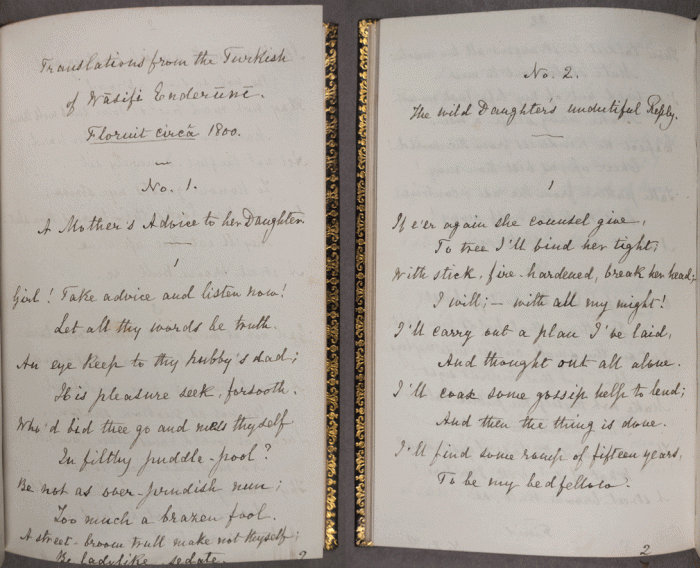 Translations from the Turkish
of Wāsifi Enderūnī.
Floruit circâ 1800.
No. 1.
A Mother's Advice to her Daughter.
1
Girl! Take advice and listen now!
Let all thy words be truth.
An eye keep to thy hubby's dad;
His pleasure seek, forsooth.
Who'd bid thee go and mess thyself
In filthy puddle-pool?
Be not as over-prudish nun;
Too much a brazen fool.
A street-broom trull make not thyself;
Be ladylike, sedate.
2
No. 2.
The wild Daughter's undutiful Reply.
1
If e'er again she counsel give,
To tree I'll bind her tight;
With stick, fire-hardened, break her head;
I will;— with all my might!
I'll carry out a plan I've laid,
And thought out all alone.
I'll coax some gossip help to lend;
And then the thing is done.
I'll find some romp of fifteen years,
To be my bedfellow.
2